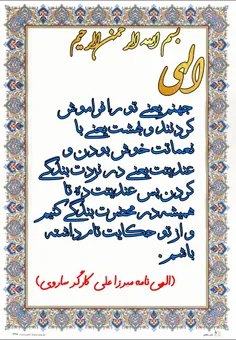 بسم الله الرحمن الرحیم
الهی
جهنم یعنی تو را فراموش
کردند و بهشت یعنی با
خدائت خوش بودن و
عندیت یعنی در نزدت بندگی
کردن پس عندیت ده تا
همیشه در محضرت بندگی کنیم
و از تو حکایت نامه داشته
باشم.
(الهی نامه میرزا علی کارگر ساروی)